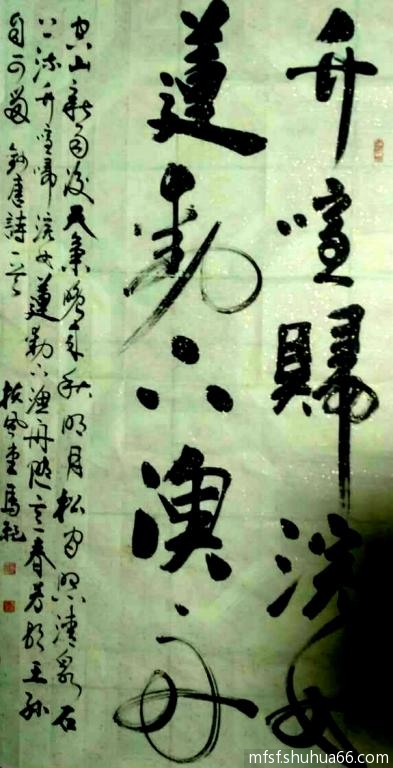 竹喧歸浣女
蓮動下漁舟
空山新雨後天氣晚來秋明月松間照清泉石
上流竹喧歸浣女蓮動下漁舟隨意春芳歇王孫
自可留 錄唐詩一首 扶風堂馬
mfsf.shuhua66.com